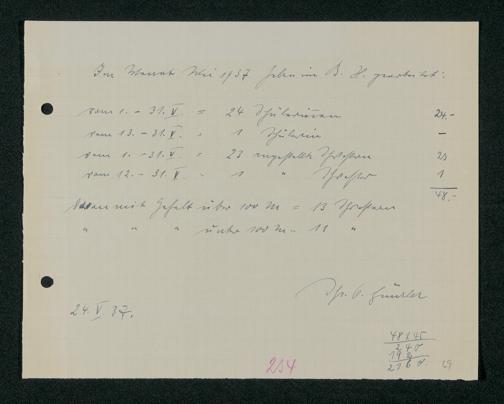 Im Monat Mai 1937 haben im B. H. gearbeitet:
vom 1. - 31. V. = 24 Schülerinnen 24.-
vom 13. - 31. V. " 1 Schülerin -
vom 1. - 31. V. = 23 angestellte Schwestern 23
vom 12. - 31. V. - 1 " Schwester 1
48.-
davon mit Gehalt über 100 M = 13 Schwestern
" " " unter 100 M - 11 "
Schw. P.
24. V. 37.
48 x 45
240
192
2160
234